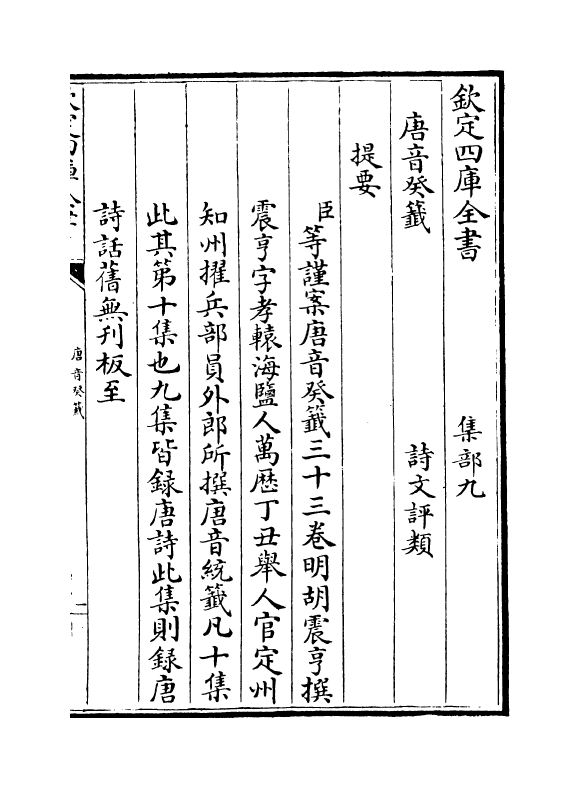 欽定四庫全書　集部九
唐音癸籖　詩文評類
提要
臣等謹案唐音癸籖三十三卷明胡震亨撰
震亨字孝轅海鹽人萬歴丁丑舉人官定州
知州擢兵部員外郎所撰唐音統籖凡十集
此其第十集也九集皆録唐詩此集則録唐
詩話舊無刋板至
唐音癸籖